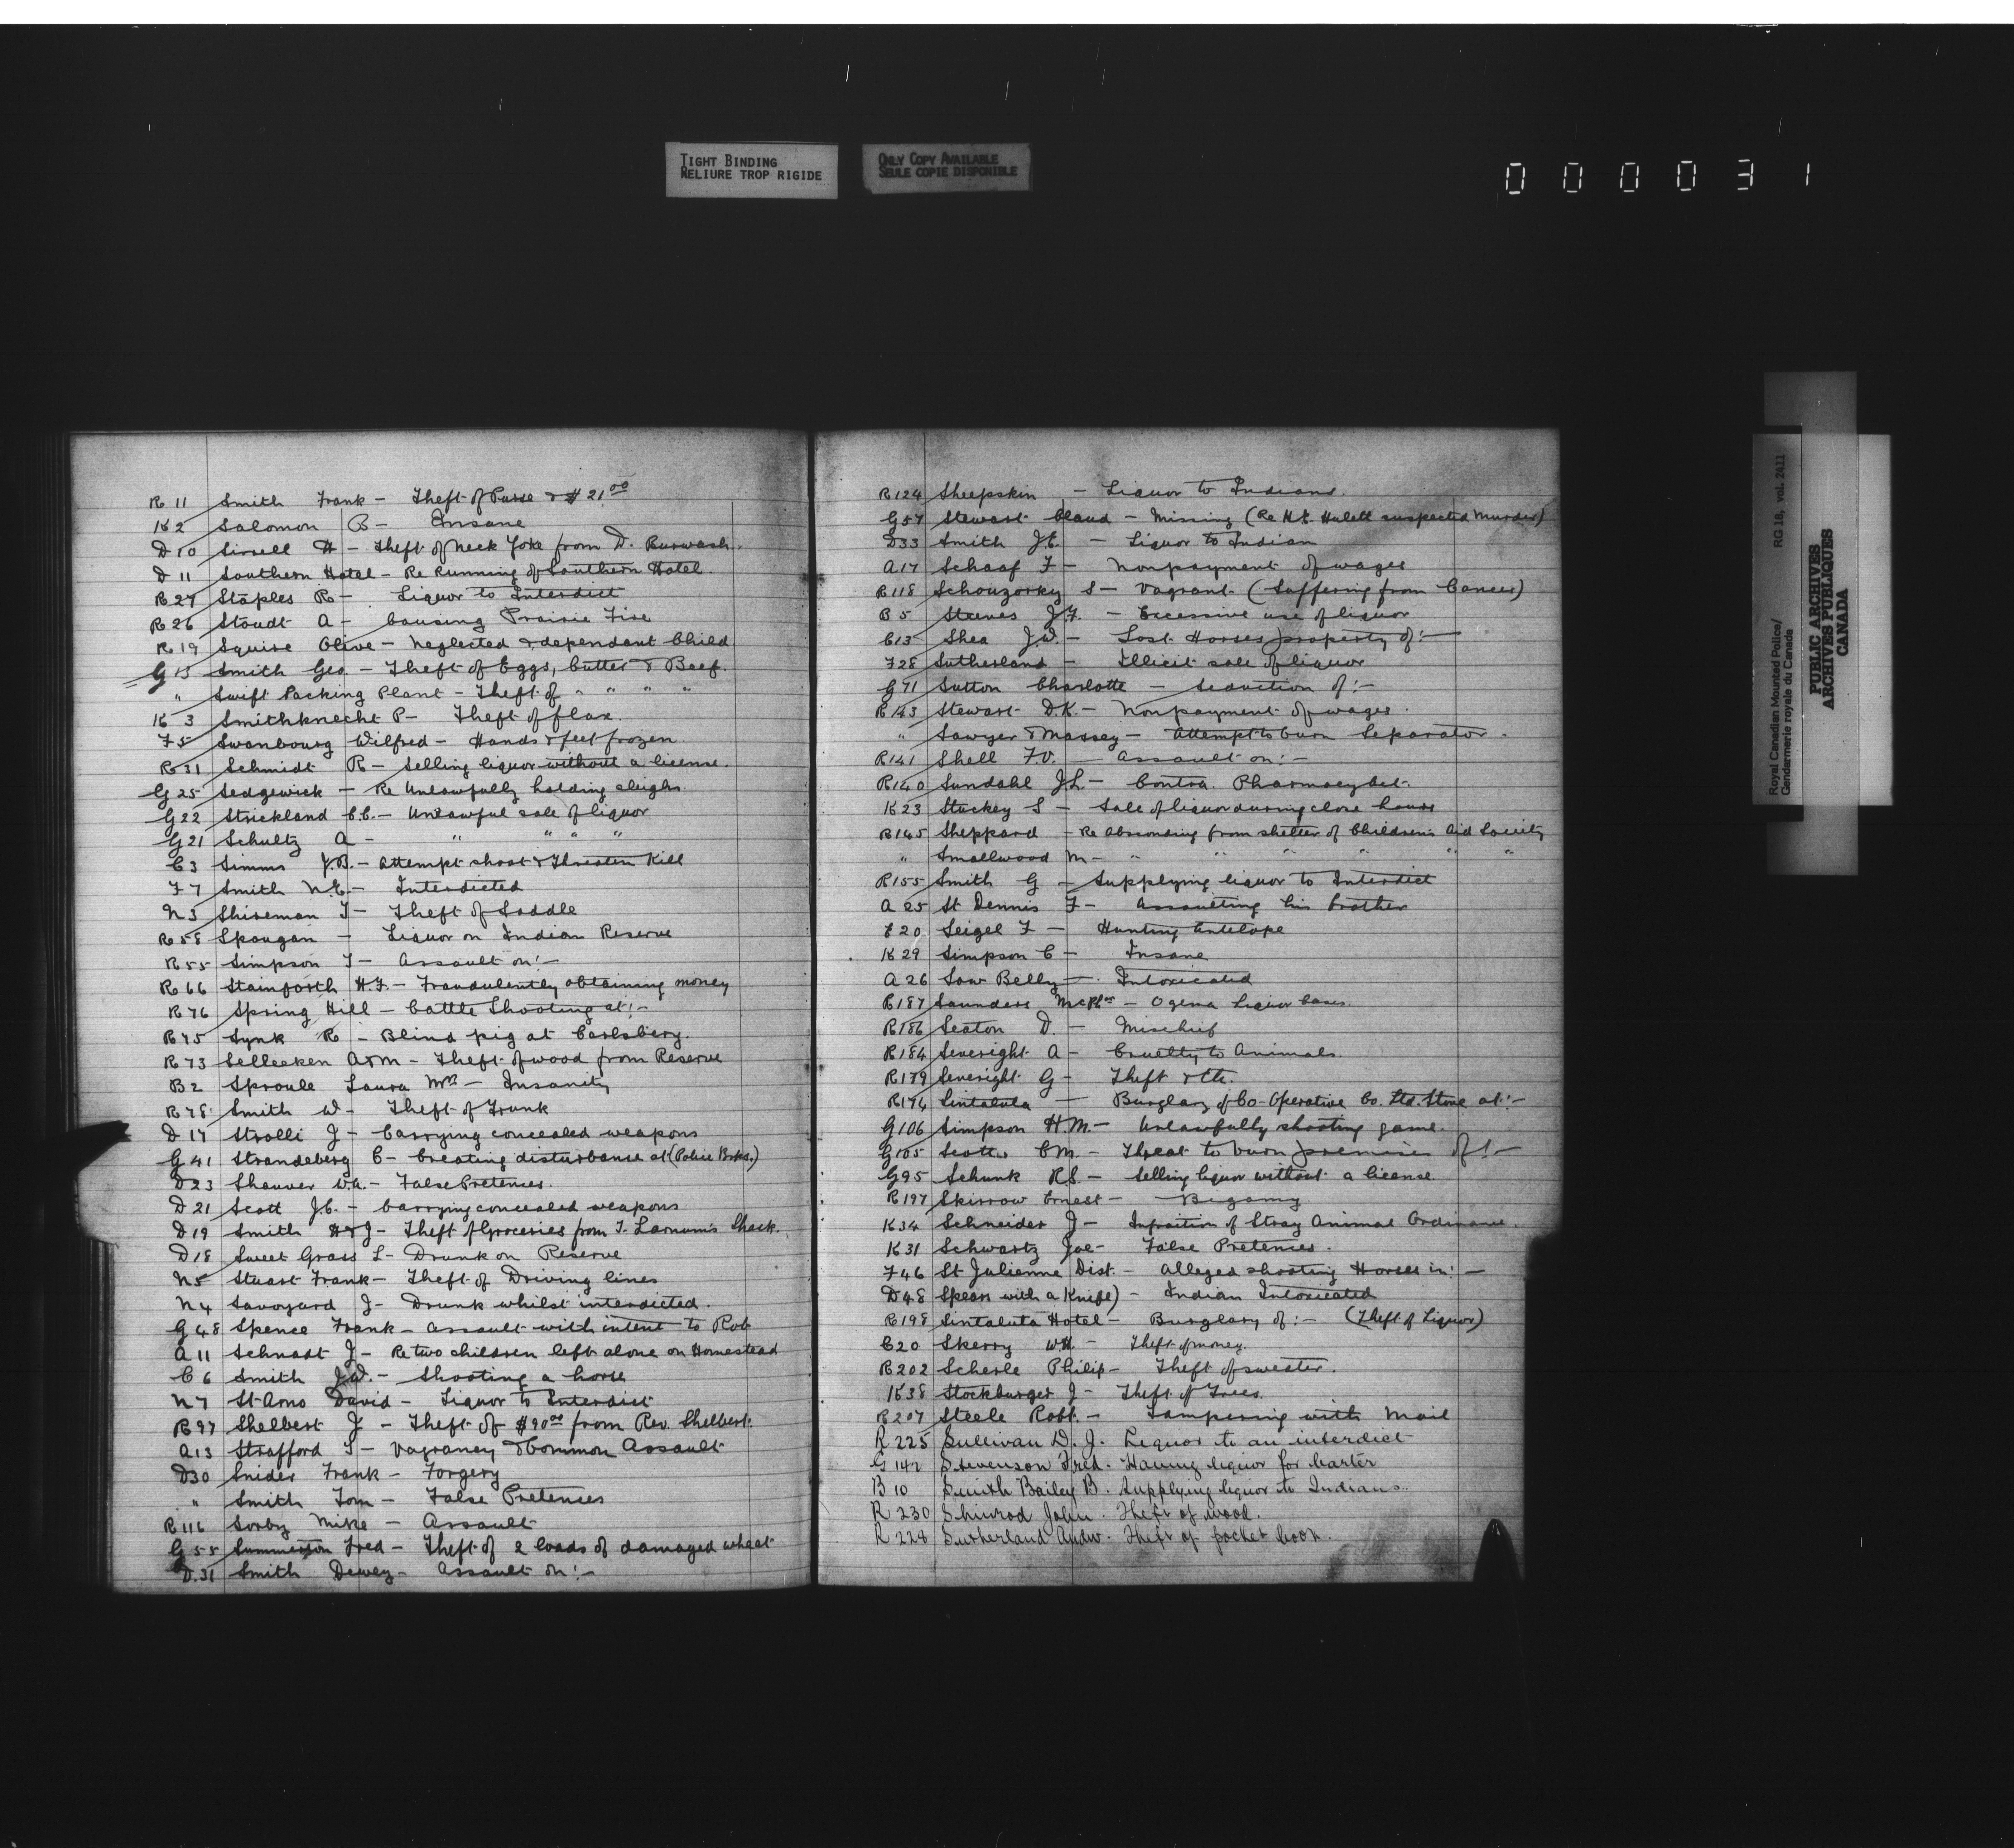 TIGHT BINDING
RELIURE TROP RIGIDE
ONLY COPY AVAILABLE
SEULE COPIE DISPONIBLE
000031
R 11 Smith Frank - Theft of Purse & $21.00
K 2 Salomon R - Insane
D 10 Sirsell H - Theft of Neck Yoke from D. Burwash.
D 11 Southern Hotel - Re Running of Southern Hotel.
R 27 Staples R - Liquor to Interdict
R 26 Stoudt A - Causing Prairie Fire
R 19 Squire Olive - Neglected & dependant Child
G 15 Smith Geo. - Theft of Eggs, butter & Beef.
" Swift Packing Plant - Theft of " " " "
K 3 Smithknecht P - Theft of flax.
F 5 Swanbourg Wilfred - Hands & feet frozen
R 31 Schmidt R - Selling liquor without a license.
G 25 Sedgewick - Re Unlawfully holding sleighs
G 22 Strickland C.C. - Unlawful sale of liquor
G 21 Schultz A - " " " "
C 3 Simms J.B. - Attempt shoot & threaten Kill
F 7 Smith N.C. - Interdicted
N 3 Shireman T - Theft of Saddle
R 58 Spougan - Liquor on Indian Reserve
R 55 Simpson T - Assault on:-
R 66 Stainforth H.F. - Fraudulently obtaining money
R 76 Spring Hill - Cattle Shooting at:-
R 75 Synk R - Blind pig at Carlsberg.
R 73 Selleeken A & M - Theft of wood from Reserve
B 2 Sproule Laura Mrs - Insanity
R 78 Smith W - Theft of Trunk
D 17 Strolli J - Carrying concealed weapons
G 41 Strandeberg C - Creating disturbance at (Police Brks.)
D 23 Shauver W.A. - False Pretences.
D 21 Scott J.C. - Carrying concealed weapons
D 19 Smith H & J - Theft of Groceries from T. Larnum's Shack.
D 18 Sweet Grass L - Drunk on Reserve
N 5 Stuart Frank - Theft of Driving lines
N 4 Savoyard J - Drunk whilst interdicted.
G 48 Spence Frank - Assault with intent to Rob
A 11 Schnast J - Re two children left alone on Homestead
C 6 Smith J.W. - Shooting a horse
N 7 St Arno David - Liquor to Interdict
R 97 Shelbert J - Theft of $90.00 from Rev. Shelbert.
A 13 Strafford T - Vagrancy & Common Assault
D 30 Snider Frank - Forgery
" Smith Tom - False Pretences
R 116 Sorby Mike - Assault
G 55 Summerton Fred - Theft of 2 loads of damaged wheat
D. 31 Smith Dewey - Assault on:-
R 124 Sheepskin - Liquor to Indians.
G 57 Stewart Claud - Missing (Re H.K. Hulett suspected Murder)
D 33 Smith J.C. - Liquor to Indian
A 17 Schaaf F - Nonpayment of wages
R 118 Schouzorky S - Vagrant. (Suffering from Cancer)
B 5 Steeves J.F. - Excessive use of liquor
C 13 Shea J.W. - Lost Horses property of:-
F 28 Sutherland - Illicit sale of liquor
G 71 Sutton Charlotte - Seduction of:-
R 143 Stewart D.K. - Nonpayment of wages.
" Sawyer & Massey - Attempt to burn Separator.
R 141 Shell F.V. - Assault on:-
R 140 Sundahl J.L. - Contra. Pharmacy Act.
K 23 Stuckey S - Sale of liquor during close hours
R 145 Sheppard - Re Absconding from shelter of Children's Aid Society
" Smallwood M - " " " " " "
R 155 Smith G - Supplying liquor to Interdict
A 25 St Dennis F - Assaulting his brother
F 20 Seigel F - Hunting Antelope
K 29 Simpson C - Insane
A 26 Sow Belly - Intoxicated
R 187 Saunders - Ogema Liquor Cases.
R 186 Seaton D. - Mischief
R 184 Severight A - Cruelty to Animals.
R 179 Severight G - Theft &tc.
R 174 Sintaluta - Burglary of Co-Operative Co. Ltd. Store at:-
G 106 Simpson H.M. - Unlawfully shooting game.
G 105 Scotter C M. - Threat to burn premises of:-
G 95 Schunk R.S. - Selling liquor without a license
R 197 Skirrow Ernest - Bigamy
K 34 Schneider J - Infraction of Stray Animal Ordinance.
K 31 Schwartz Joe - False Pretences.
F 46 St Julienne Dist. - Alleged shooting Horses in:-
D 48 Spears with a Knife) - Indian Intoxicated
R 198 Sintaluta Hotel - Burglary of:- (Theft of Liquor)
C 20 Skerry W.H. - Theft of money.
R 202 Scherle Philip - Theft of sweater.
K 38 Stockburger J - Theft of Trees.
R 207 Steele Robt. - Tampering with Mail
R 225 Sullivan D. J. Liquor to an interdict
G 142 Stevenson Fred. Having liquor for barter
B 10 Smith Bailey B. Supplying liquor to Indians.
R 230 Shinrod John. Theft of wood.
R 228 Sutherland Andw. Theft of pocket book.
Royal Canadian Mounted Police/
Gendarmerie royale du Canada
RG 18, vol. 2411
PUBLIC ARCHIVES
ARCHIVES PUBLIQUES
CANADA